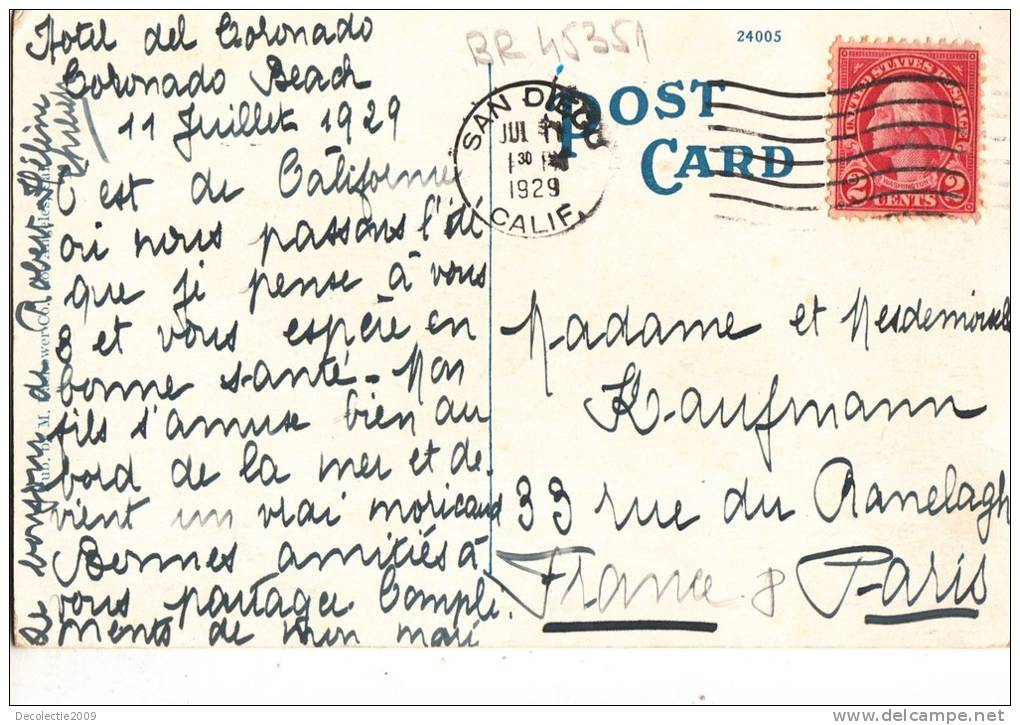 Hotel del Coronado
Coronado Beach
11 Juillet 1929
C'est de Californie
où nous passons l'été
que je pense à vous
8 et vous espère en
bonne santé. Mon
fils s'amuse bien au
bord de la mer et de-
vient un vrai moricaud
Bonnes amitiés à
vous partager. Complé
ments de mon mari
BR 45351
24005
POST
CARD
SAN DIEGO
JUL 11
1 30 PM
1929
CALIF.
UNITED STATES POSTAGE
WASHINGTON
2 CENTS 2
Madame et Mesdemoisell
Kaufmann
33 rue du Ranelagh
France 8 Paris
Decolectie2009
www.delcampe.net